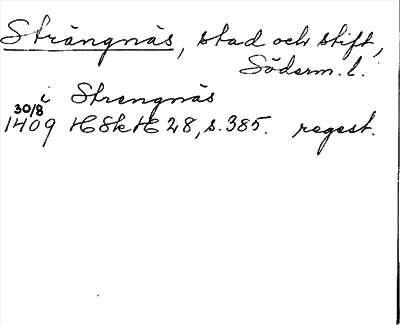 Strängnäs, stad och stift,
Söderm. l.
i Strengnäs
30/8
1409 HSkH 28, s. 385. regest.